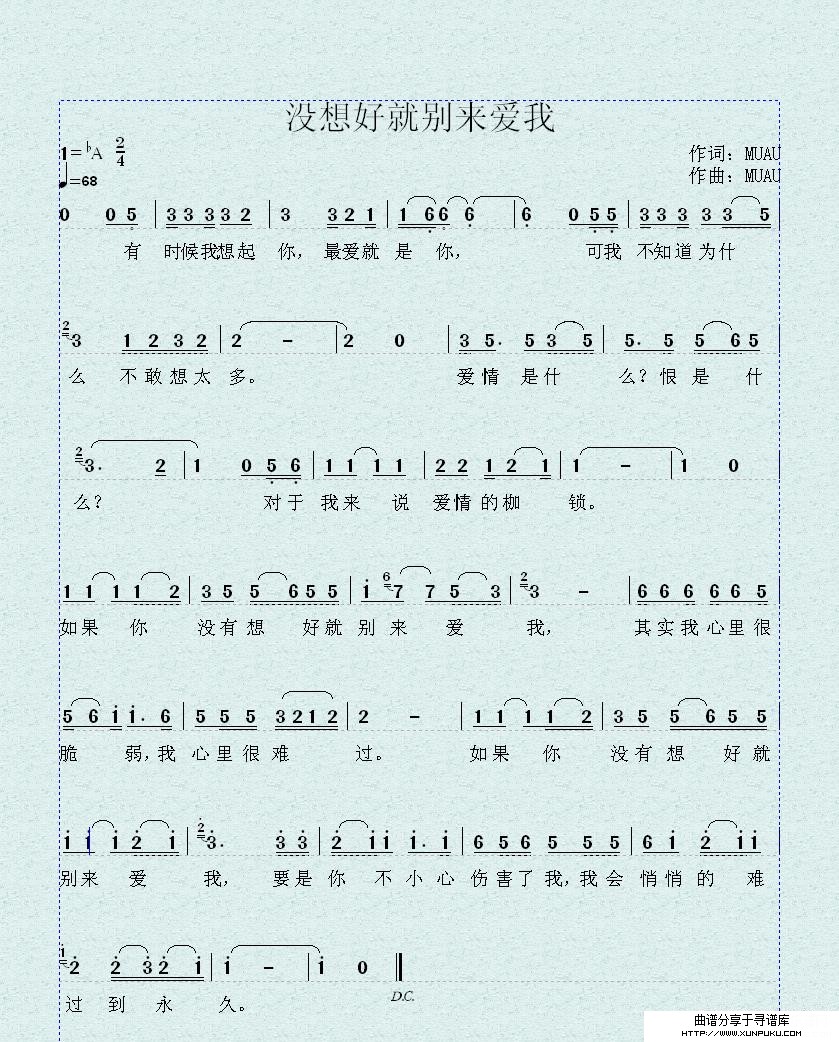 没想好就别来爱我
1=♭A 2/4
作词：MUAU
♩=68
作曲：MUAU
0 0 5 | 3 3 3 3 2 | 3 3 2 1 | 1 6 6 6 | 6 0 5 5 | 3 3 3 3 3 5
有 时候我想起 你， 最爱就 是 你， 可我 不知道 为什
2 3 1 2 3 2 | 2 － | 2 0 | 3 5. 5 3 5 | 5. 5 5 6 5
么 不敢想太 多。 爱情 是什 么？恨是 什
2 3. 2 | 1 0 5 6 | 1 1 1 1 | 2 2 1 2 1 | 1 － | 1 0
么？ 对于 我来 说 爱情的枷 锁。
1 1 1 1 2 | 3 5 5 6 5 5 | i 6 7 7 5 3 | 2 3 － | 6 6 6 6 6 5
如果 你 没有想 好就 别来 爱 我， 其实我心里很
5 6 i i. 6 | 5 5 5 3 2 1 2 | 2 － | 1 1 1 1 2 | 3 5 5 6 5 5
脆 弱，我 心里很难 过。 如果 你 没有想 好就
i i i 2 i | 2 3. 3 3 | 2 i i i. i | 6 5 6 5 5 5 | 6 i 2 i i
别来 爱 我， 要是 你 不小心 伤害了 我，我会 悄悄的 难
1 2 2 3 2 i | i － | i 0
过 到 永 久。
D.C.
曲谱分享于寻谱库
HTTP://WWW.XUNPUKU.COM